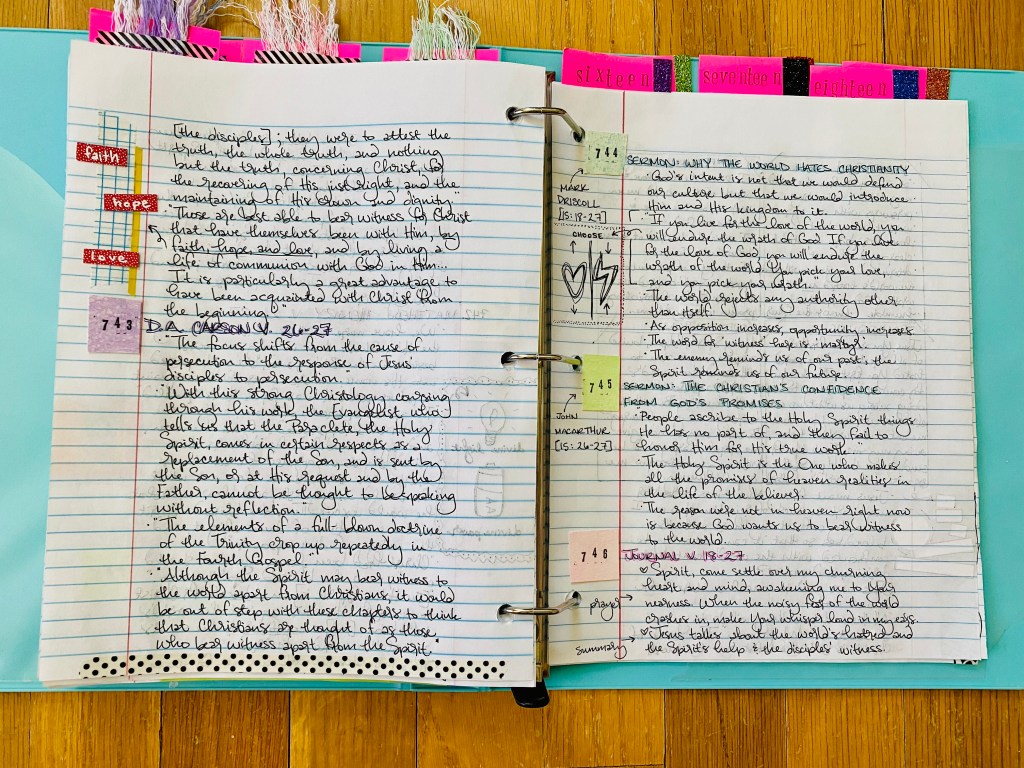 sixteen
seventeen
eighteen
faith
hope
love
[the disciples]; they were to attest the
truth, the whole truth, and nothing
but the truth, concerning Christ, for
the recovering of His just right, and the
maintaining of His crown and dignity.
"Those are best able to bear witness for Christ
that have themselves been with Him, by
faith, hope, and love, and by living a
life of communion with God in Him...
It is particularly a great advantage to
have been acquainted with Christ from
the beginning."
743
D.A. CARSON V. 26-27
"The focus shifts from the cause of
persecution to the response of Jesus'
disciples to persecution.
"With this strong Christology coursing
through his work, the Evangelist who
tells us that the Paraclete, the Holy
Spirit, comes in certain respects as a
replacement of the Son, and is sent by
the Son, or at His request and by the
Father, cannot be thought to be speaking
without reflection."
"The elements of a full-blown doctrine
of the Trinity crop up repeatedly in
the Fourth Gospel."
"Although the Spirit may bear witness to
the world apart from Christians, it would
be out of step with these chapters to think
that Christians are thought of as those
who bear witness apart from the Spirit."
744
MARK
DRISCOLL
[15:18-27]
CHOOSE
SERMON: WHY THE WORLD HATES CHRISTIANITY
God's intent is not that we would defend
our culture but that we would introduce
Him and His kingdom to it.
"If you live for the love of the world, you
will endure the wrath of God. If you live
for the love of God, you will endure the
wrath of the world. You pick your love,
and you pick your wrath."
The world rejects any authority other
than itself.
As opposition increases, opportunity increases.
The word for "witness" here is "martyr".
The enemy reminds us of our past; the
Spirit reminds us of our future.
745
JOHN
MACARTHUR
[15:26-27]
SERMON: THE CHRISTIAN'S CONFIDENCE
FROM GOD'S PROMISES
"People ascribe to the Holy Spirit things
He has no part of, and they fail to
honor Him for His true work..."
The Holy Spirit is the One who makes
all the promises of heaven realities in
the life of the believer.
The reason we're not in heaven right now
is because God wants us to bear witness
to the world.
746
JOURNAL V. 18-27
prayer
Spirit, come settle over my churning
heart and mind, awakening me to Your
nearness. When the noisy fear of the world
crashes in, make Your whisper land in my ears.
summary
Jesus talks about the world's hatred and
the Spirit's help & the disciples' witness.